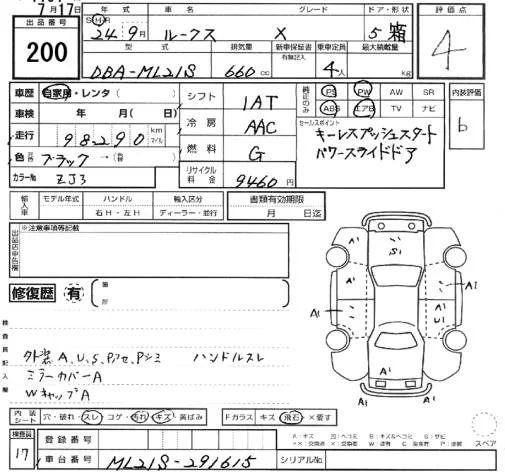 7月17日
出品番号
200
年式 車名 グレード ドア・形状
S H R
24年9月 ルークス X 5 箱
型式 排気量 新車保証書 乗車定員 最大積載量
有無記入
DBA-ML21S 660cc 4人 kg
評価点
4
車歴 自家用・レンタ( )
車検 年 月( )
走行 98290 km マイル
色 元色 ブラック →(替色 )
カラーNo ZJ3
シフト IAT
冷房 AAC
燃料 G
リサイクル料金 9460円
純正のみ
PS PW AW SR
ABS エアB TV ナビ
セールスポイント
キーレスプッシュスタート
パワースライドドア
内装評価
b
輸入車
モデル年式 ハンドル 輸入区分
右H・左H ディーラー・並行
書類有効期限
月 日迄
出品店申告欄
※注意事項等記載
修復歴 有
箇所
検査員記入欄
外装 A、U、S、Pアセ、Pシミ ハンドルスレ
ミラーカバーA
WキャップA
A1
S1
A1 A1
A1 A1
A1 A1
U1
A1
内装シート 穴・破れ・スレ コゲ・汚れ・キズ 黄ばみ Fガラス キズ 飛石 ×要す
検査員
17
登録番号
車台番号 ML21S-291615 シリアルNo.
A:キズ U:ヘコミ B:キズ&ヘコミ S:サビ
スペア